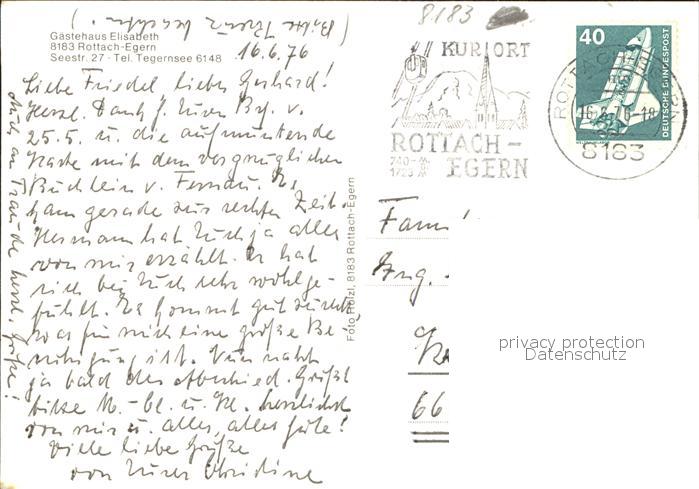 8183
(Bitte Kreuz beachten.)
Gästehaus Elisabeth
8183 Rottach-Egern
Seestr. 27 · Tel. Tegernsee 6148
16.6.76
Liebe Friedel lieber Gerhard!
Herzl. Dank f. Euren Brf. v.
25.5. u. die aufmunternde
Karte mit dem vergnüglichen
Büchlein v. Fernau. Es
kam gerade zur rechten Zeit.
Hermann hat Euch ja alles
von mir erzählt. Er hat
sich bei Euch sehr wohlge-
fühlt. Es kommt gut zurecht
was für mich eine große Be
ruhigung ist. Nun naht
ja bald der Abschied. Grüßt
bitte M.-bl. u. Kl. herzlichst
von mir u. alles, alles Gute!
Viele liebe Grüße
von Eurer Christine
Auch an Traude herzl. Grüße!
Foto Hölzl, 8183 Rottach-Egern
KURORT
ROTTACH-
EGERN
40
DEUTSCHE BUNDESPOST
ROTTACH-EGERN
16.6.76-18
8183
Fam
Ing.
66
privacy protection
Datenschutz